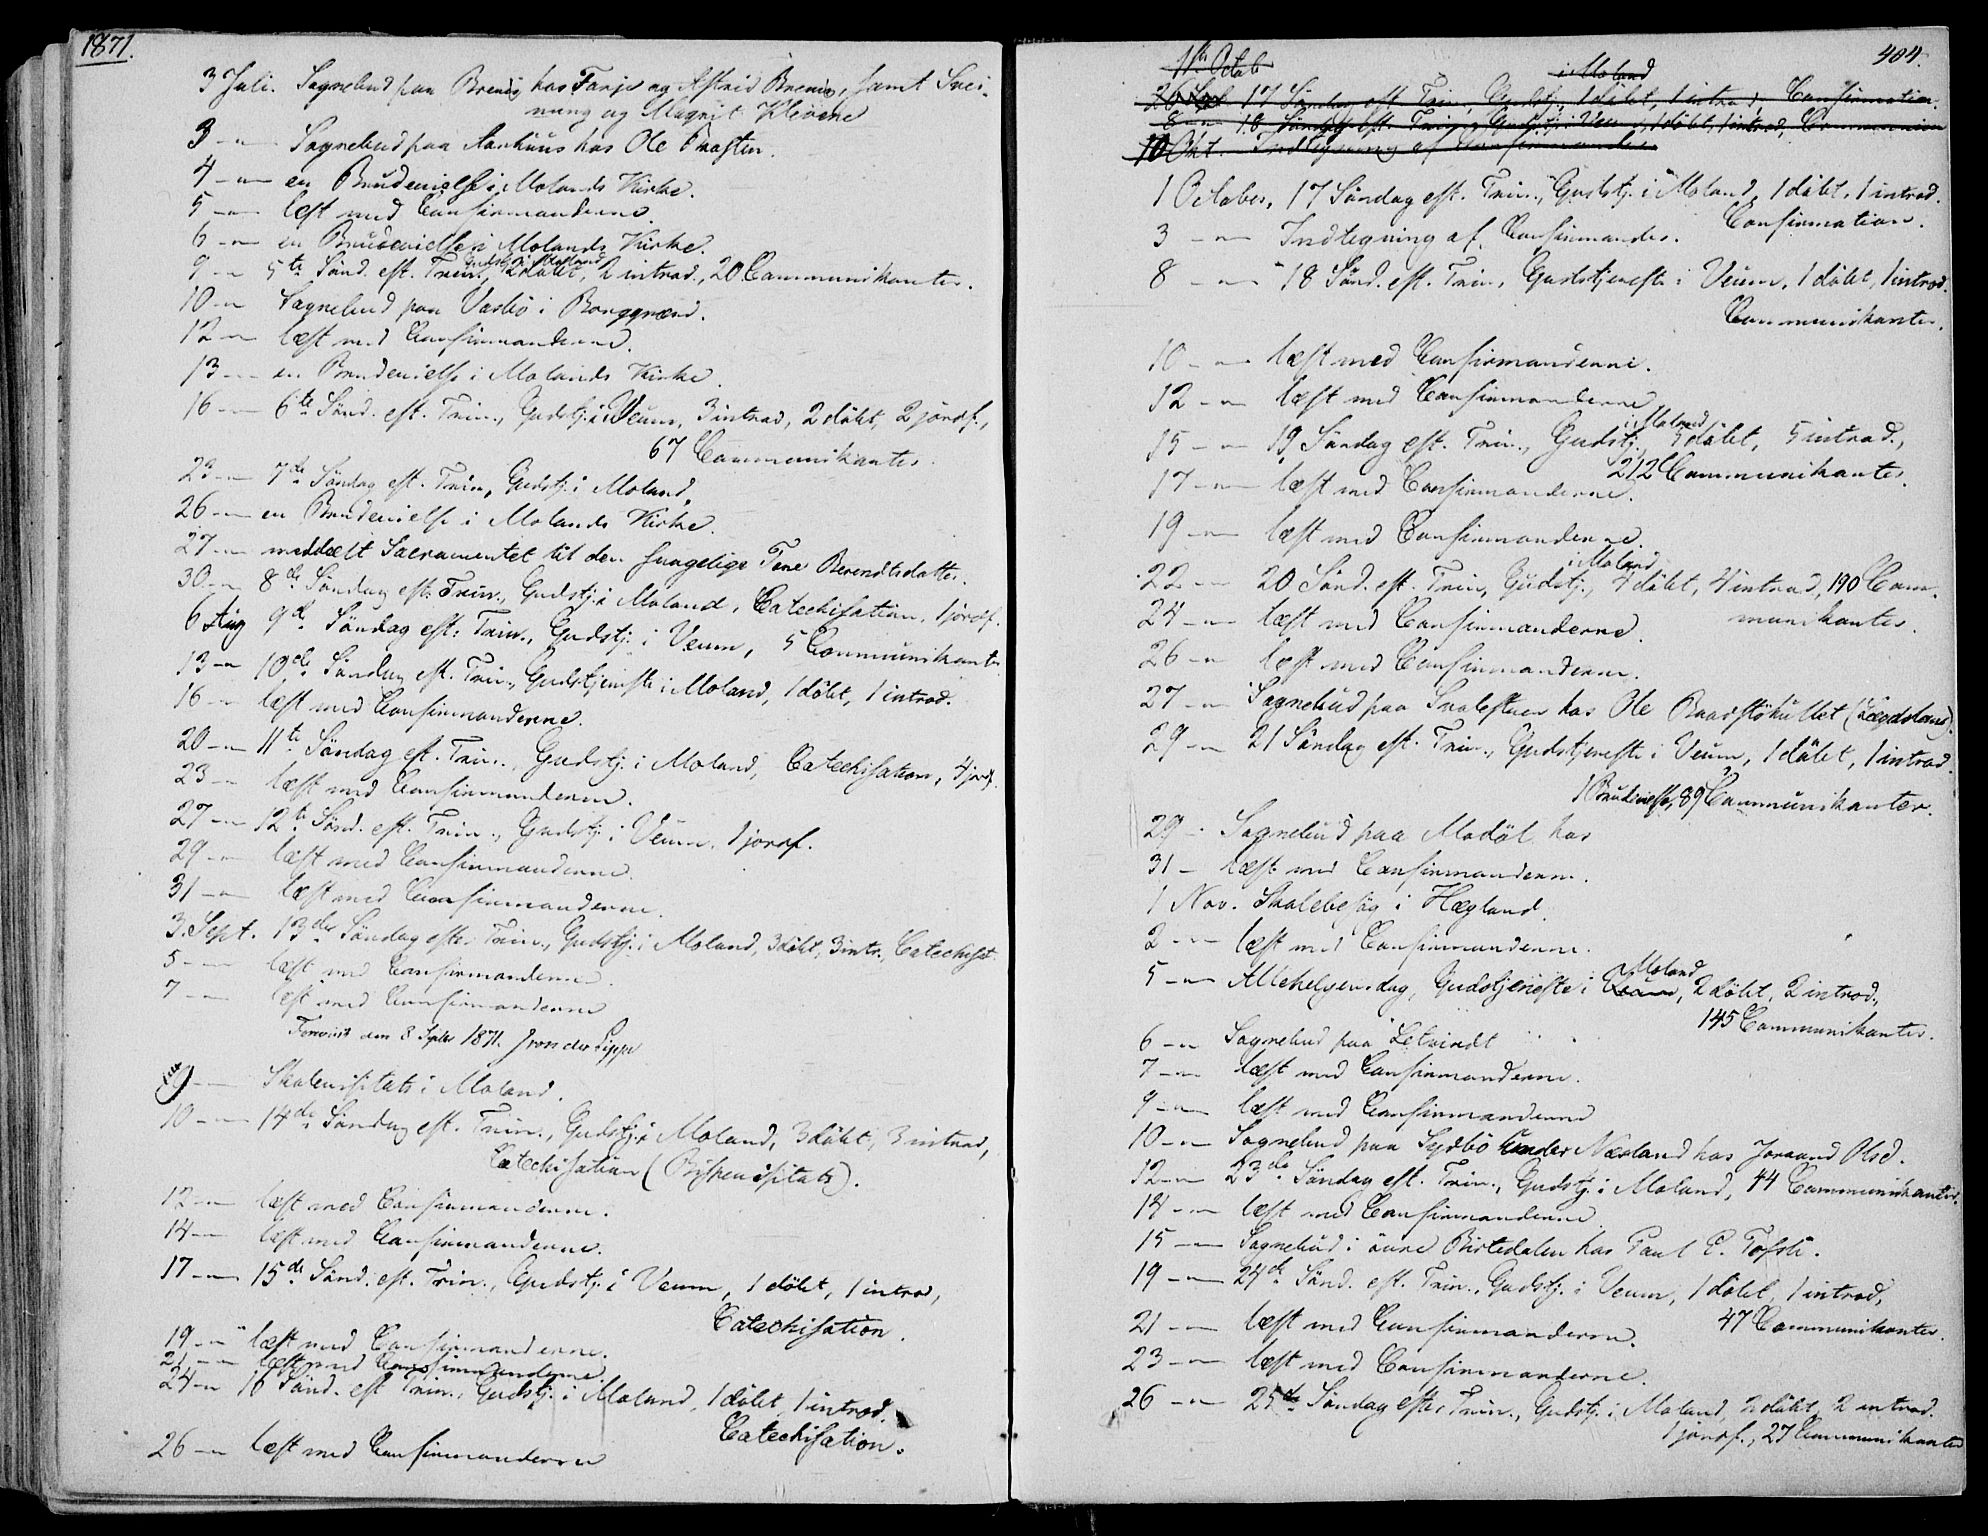 1871.
3 Juli. Sognebud paa Brenni hos Tarje og Astrid Brenni, samt Svei-
nung og Magnit Klevene
3 — Sognebud paa Aanhuus hos Ole Prasten.
4 — en Brudevielse i Molands Kirke.
5 — læst med Confirmanderne.
6 — en Brudevielse i Molands Kirke.
9 — 5te Sønd. eft. Trin., Gudstj. i Moland, 2 døbt, 2 introd., 20 Communikanter.
10 — Sognebud paa Vasbö i Borggrænd.
12 — læst med Confirmanderne.
13 — en Brudevielse i Molands Kirke.
16 — 6te Sønd. eft. Trin., Gudstj. i Veum, 3 introd, 2 døbt, 2 jordf.,
67 Communikanter.
23 — 7de Søndag eft. Trin, Gudstj. i Moland.
26 — en Brudevielse i Molands Kirke.
27 — meddeelt Sacramentet til den svagelige Tone Berendtsdatter.
30 — 8de Søndag eft. Trin., Gudstj. i Moland, Catechisation, 1 jordf.
6 Aug 9de Søndag eft. Trin., Gudstj. i Veum, 5 Communikanter
13 — 10de Søndag eft. Trin., Gudstjeneste i Moland, 1 døbt, 1 introd.
16 — læst med Confirmanderne.
20 — 11te Søndag eft. Trin., Gudstj. i Moland, Catechisation, 4 jordf.
23 — læst med Confirmanderne.
27 — 12te Sønd. eft. Trin., Gudstj. i Veum, 1 jordf.
29 — læst med Confirmanderne.
31 — læst med Confirmanderne.
3. Sept. 13de Søndag efter Trin., Gudstj. i Moland, 3 døbt, 3 intr., Catechisat.
5 — læst med Confirmanderne.
7 — læst med Confirmanderne
Forevist den 8 Septbr 1871. J von der Lippe
9 — Skolevisitats i Moland.
10 — 14de Søndag eft. Trin., Gudstj. i Moland, 3 døbt, 3 introd,
Catechisation (Bispevisitats).
12 — læst med Confirmanderne.
14 — læst med Confirmanderne.
17 — 15de Sønd. eft. Trin., Gudstj. i Veum, 1 døbt, 1 introd,
Catechisation.
19 — læst med Confirmanderne.
21 — læst med Confirmanderne.
24 — 16 Sønd. eft Trin., Gudstj. i Moland, 1 døbt, 1 introd.
Catechisation.
26 — læst med Confirmanderne
404.
1ste Octob
i Moland
17 Søndag eft. Trin., Gudstj., 1 døbt, 1 introd, Confirmation.
8 — 18 Søndag eft. Trin., Gudstj. i Veum, 1 døbt, 1 introd, Communion
10 Okt. Indtegning af Confirmander
1 October, 17 Søndag eft. Trin., Gudstj. i Moland, 1 døbt, 1 introd.
Confirmation.
3 — Indtegning af Confirmander.
8 — 18 Sønd. eft. Trin., Gudstjeneste i Veum, 1 døbt, 1 introd.
Communikanter.
10 — læst med Confirmanderne.
12 — læst med Confirmanderne
15 — 19 Søndag eft. Trin., Gudstj. i Moland, 5 døbt, 5 introd.,
212 Communikanter.
17 — læst med Confirmanderne.
19 — læst med Confirmanderne.
22 — 20 Sønd. eft. Trin, Gudstj. i Moland, 4 døbt, 4 introd, 190 Com-
munikanter.
24 — læst med Confirmanderne.
26 — læst med Confirmanderne.
27 — Sognebud paa Skalestuen hos Ole Baarstökullet (Lægdslem).
29 — 21 Søndag eft. Trin., Gudstjeneste i Veum, 1 døbt, 1 introd.
1 Brudevielse, 89 Communikanter.
29 — Sognebud paa Modøl hos
31 — læst med Confirmanderne.
1 Nov. Skolebesøg i Hægland.
2 — læst med Confirmanderne.
5 — Allehelgensdag, Gudstjeneste i Veum Moland, 2 døbt, 2 introd,
145 Communikanter.
6 — Sognebud paa Letveidt
7 — læst med Confirmanderne.
9 — læst med Confirmanderne
10 — Sognebud paa Sydbö under Næsland hos Joraand Olsd.
12 — 23de Søndag eft. Trin., Gudstj. i Moland, 44 Communikanter.
14 — læst med Confirmanderne
15 — Sognebud i övre Birtedalen hos Paul E. Tofsti.
19 — 24de Sønd. eft. Trin., Gudstj. i Veum, 1 døbt, 1 introd,
47 Communikanter.
21 — læst med Confirmanderne.
23 — læst med Confirmanderne.
26 — 25de Søndag efter Trin., Gudstj. i Moland, 2 døbt, 2 introd.
1 jordf., 27 Communikanter